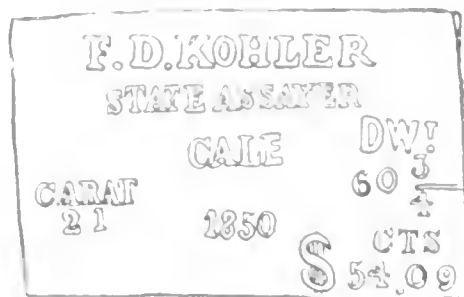 F.D.KOHLER
STATE ASSAYER
CALE
DWT
60 3/4
CARAT
21
1850
CTS
$ 54.09